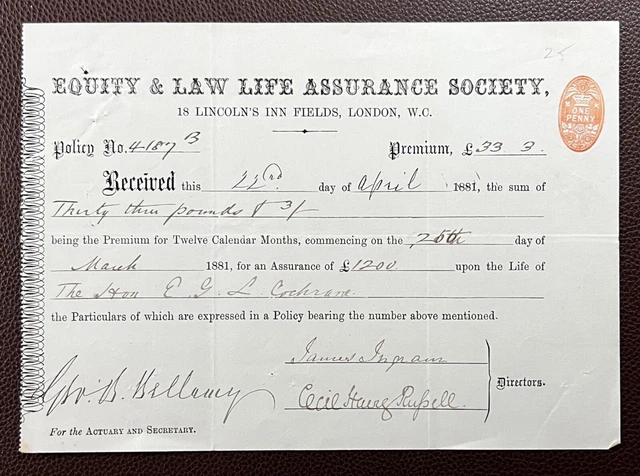 25
EQUITY & LAW LIFE ASSURANCE SOCIETY,
18 LINCOLN'S INN FIELDS, LONDON, W.C.
ONE PENNY
Policy No. 4187 B Premium, £33 3.
Received this 22nd day of April 1881, the sum of
Thirty three pounds & 3/
being the Premium for Twelve Calendar Months, commencing on the 25th day of
March 1881, for an Assurance of £1200 upon the Life of
The Hon E. G. L. Cochrane.
the Particulars of which are expressed in a Policy bearing the number above mentioned.
James Ingram
Directors.
Geo. B. Bellamy
Cecil Henry Russell.
For the ACTUARY AND SECRETARY.